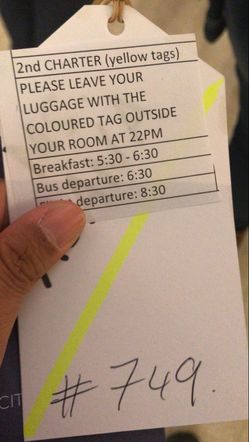 2nd CHARTER (yellow tags)
PLEASE LEAVE YOUR
LUGGAGE WITH THE
COLOURED TAG OUTSIDE
YOUR ROOM AT 22PM
Breakfast: 5:30 - 6:30
Bus departure: 6:30
departure: 8:30
CIT
#749.